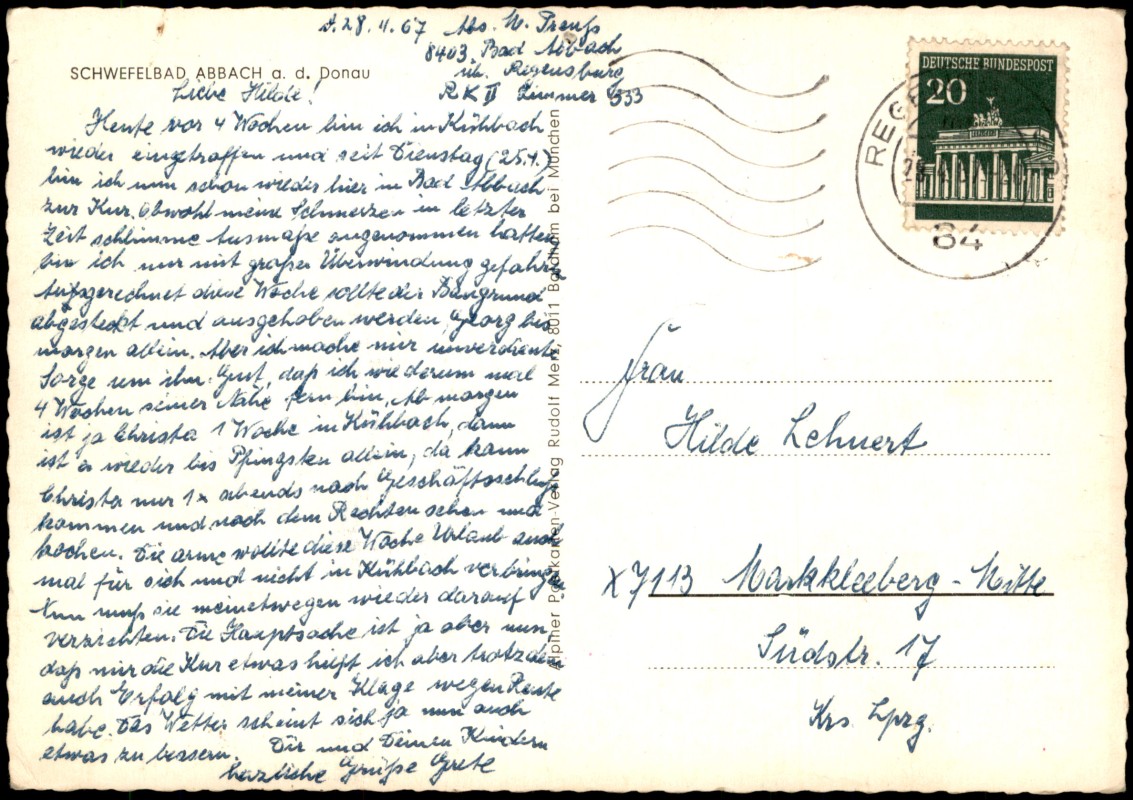 d. 28.4.67 Abs. M. Preuß
8403 Bad Abbach
üb. Regensburg
RK II Zimmer 333
SCHWEFELBAD ABBACH a. d. Donau
Liebe Hilde!
Heute vor 4 Wochen bin ich in Kühbach
wieder eingetroffen und seit Dienstag (25.4.)
bin ich nun schon wieder hier in Bad Abbach
zur Kur. Obwohl meine Schmerzen in letzter
Zeit schlimme Ausmaße angenommen hatten
bin ich nur mit großer Überwindung gefahren
Ausgerechnet diese Woche sollte der Baugrund
abgesteckt und ausgehoben werden, Georg bis
morgen allein. Aber ich mache mir unverdiente
Sorge um ihn. Gut, daß ich wiederum mal
4 Wochen seiner Nähe fern bin. Ab morgen
ist ja Christa 1 Woche in Kühbach, dann
ist er wieder bis Pfingsten allein, da kann
Christa nur 1x abends nach Geschäftsschluß
kommen und nach dem Rechten sehen und
kochen. Die arme wollte diese Woche Urlaub auch
mal für sich und nicht in Kühbach verbringen
Nun muß sie meinetwegen wieder darauf
verzichten. Die Hauptsache ist ja aber nun,
daß mir die Kur etwas hilft ich aber trotzdem
auch Erfolg mit meiner Klage wegen Rente
habe. Das Wetter scheint sich ja nun auch
etwas zu bessern. Dir und Deinen Kindern
herzliche Grüße Grete
Alpiner Postkarten-Verlag Rudolf Merz, 8011 Baldham bei München
DEUTSCHE BUNDESPOST
20
84
Frau
Hilde Lehnert
X 7113 Markkleeberg-Mitte
Südstr. 17
Krs. Lpzg.